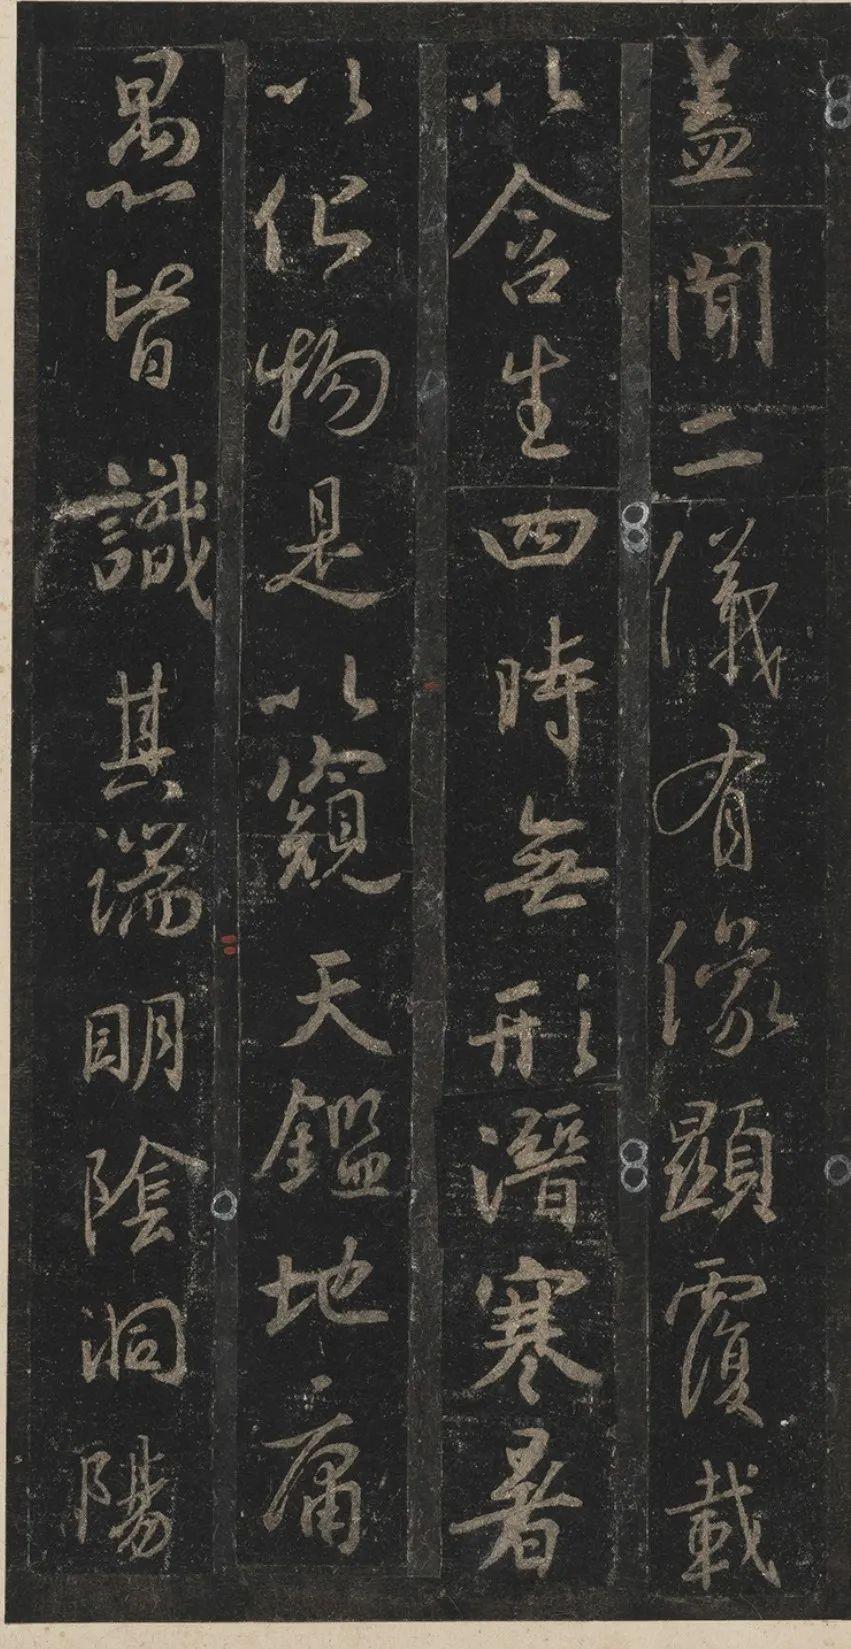 蓋聞二儀有像顯覆載
以含生四時無形潛寒暑
以化物是以窺天鑑地庸
愚皆識其端明陰洞陽